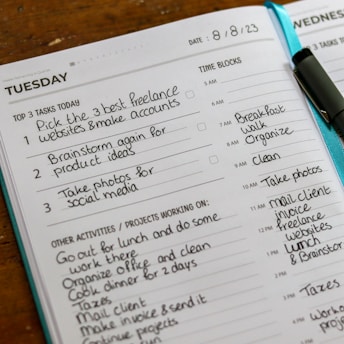 DATE: 8/8/23
TUESDAY
WEDNES
TOP 3 TASKS TODAY
1 Pick the 3 best freelance
websites & make accounts
2 Brainstorm again for
product ideas
3 Take photos for
social media
OTHER ACTIVITIES / PROJECTS WORKING ON:
Go out for lunch and do some
work there
Organize office and clean
Cook dinner for 2 days
Taxes
Mail client
Make invoice & send it
Continue projects
TIME BLOCKS
5 AM
6 AM
7 AM Breakfast
walk
8 AM Organize
9 AM clean
10 AM Take photos
11 AM mail client
invoice
12 PM freelance
websites
1 PM lunch
& Brainstor
2 PM
3 PM Taxes
4 PM Worko
projec